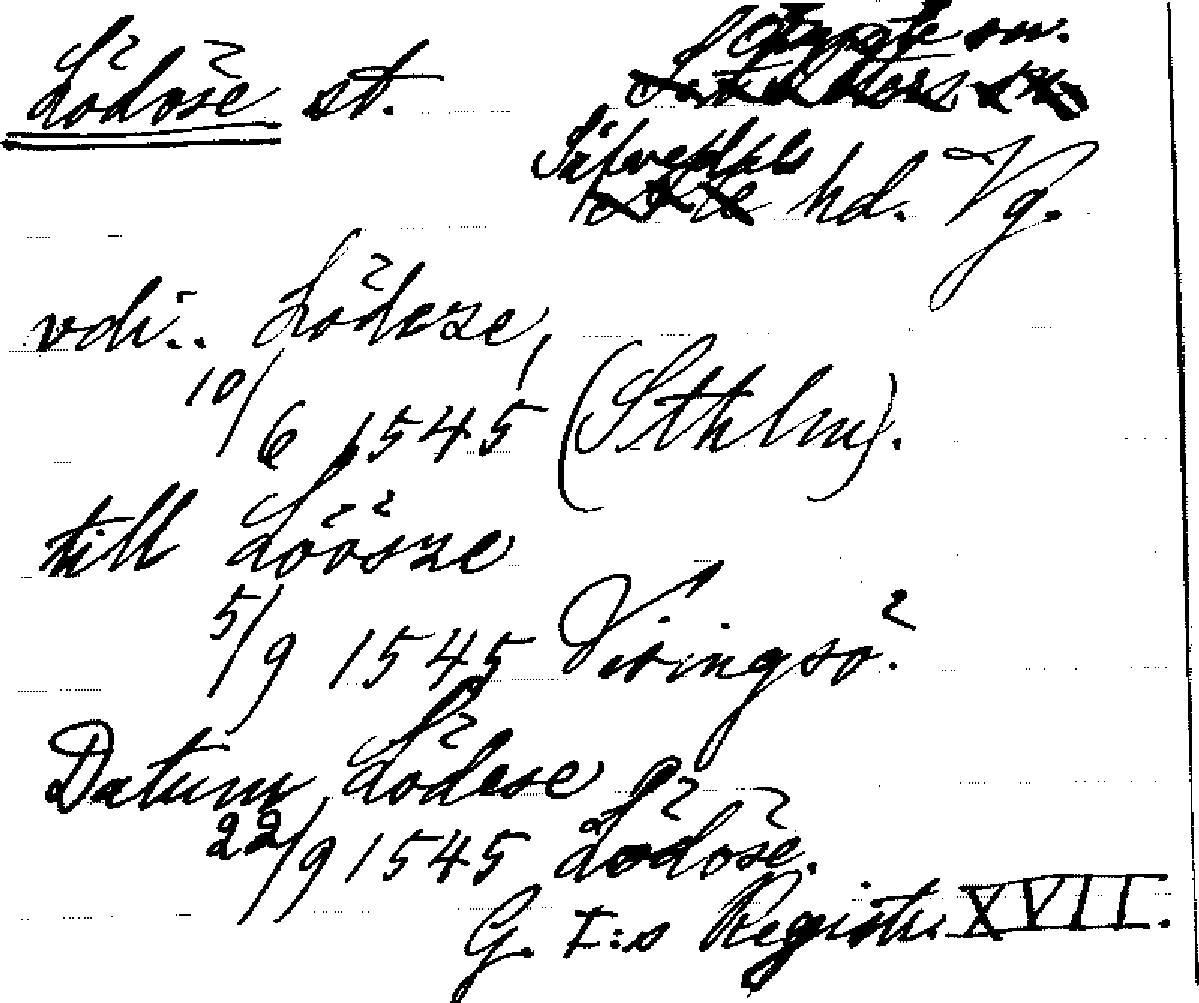 Lödöse st.
sn.
hd. Vg.
vdi.. Lödesze,
10/6 1545 (Sthlm).
till Löösze
5/9 1545 Visingsö.
Datum Lödese
22/9 1545 Lödöse.
G. I:s Registr. XVII.